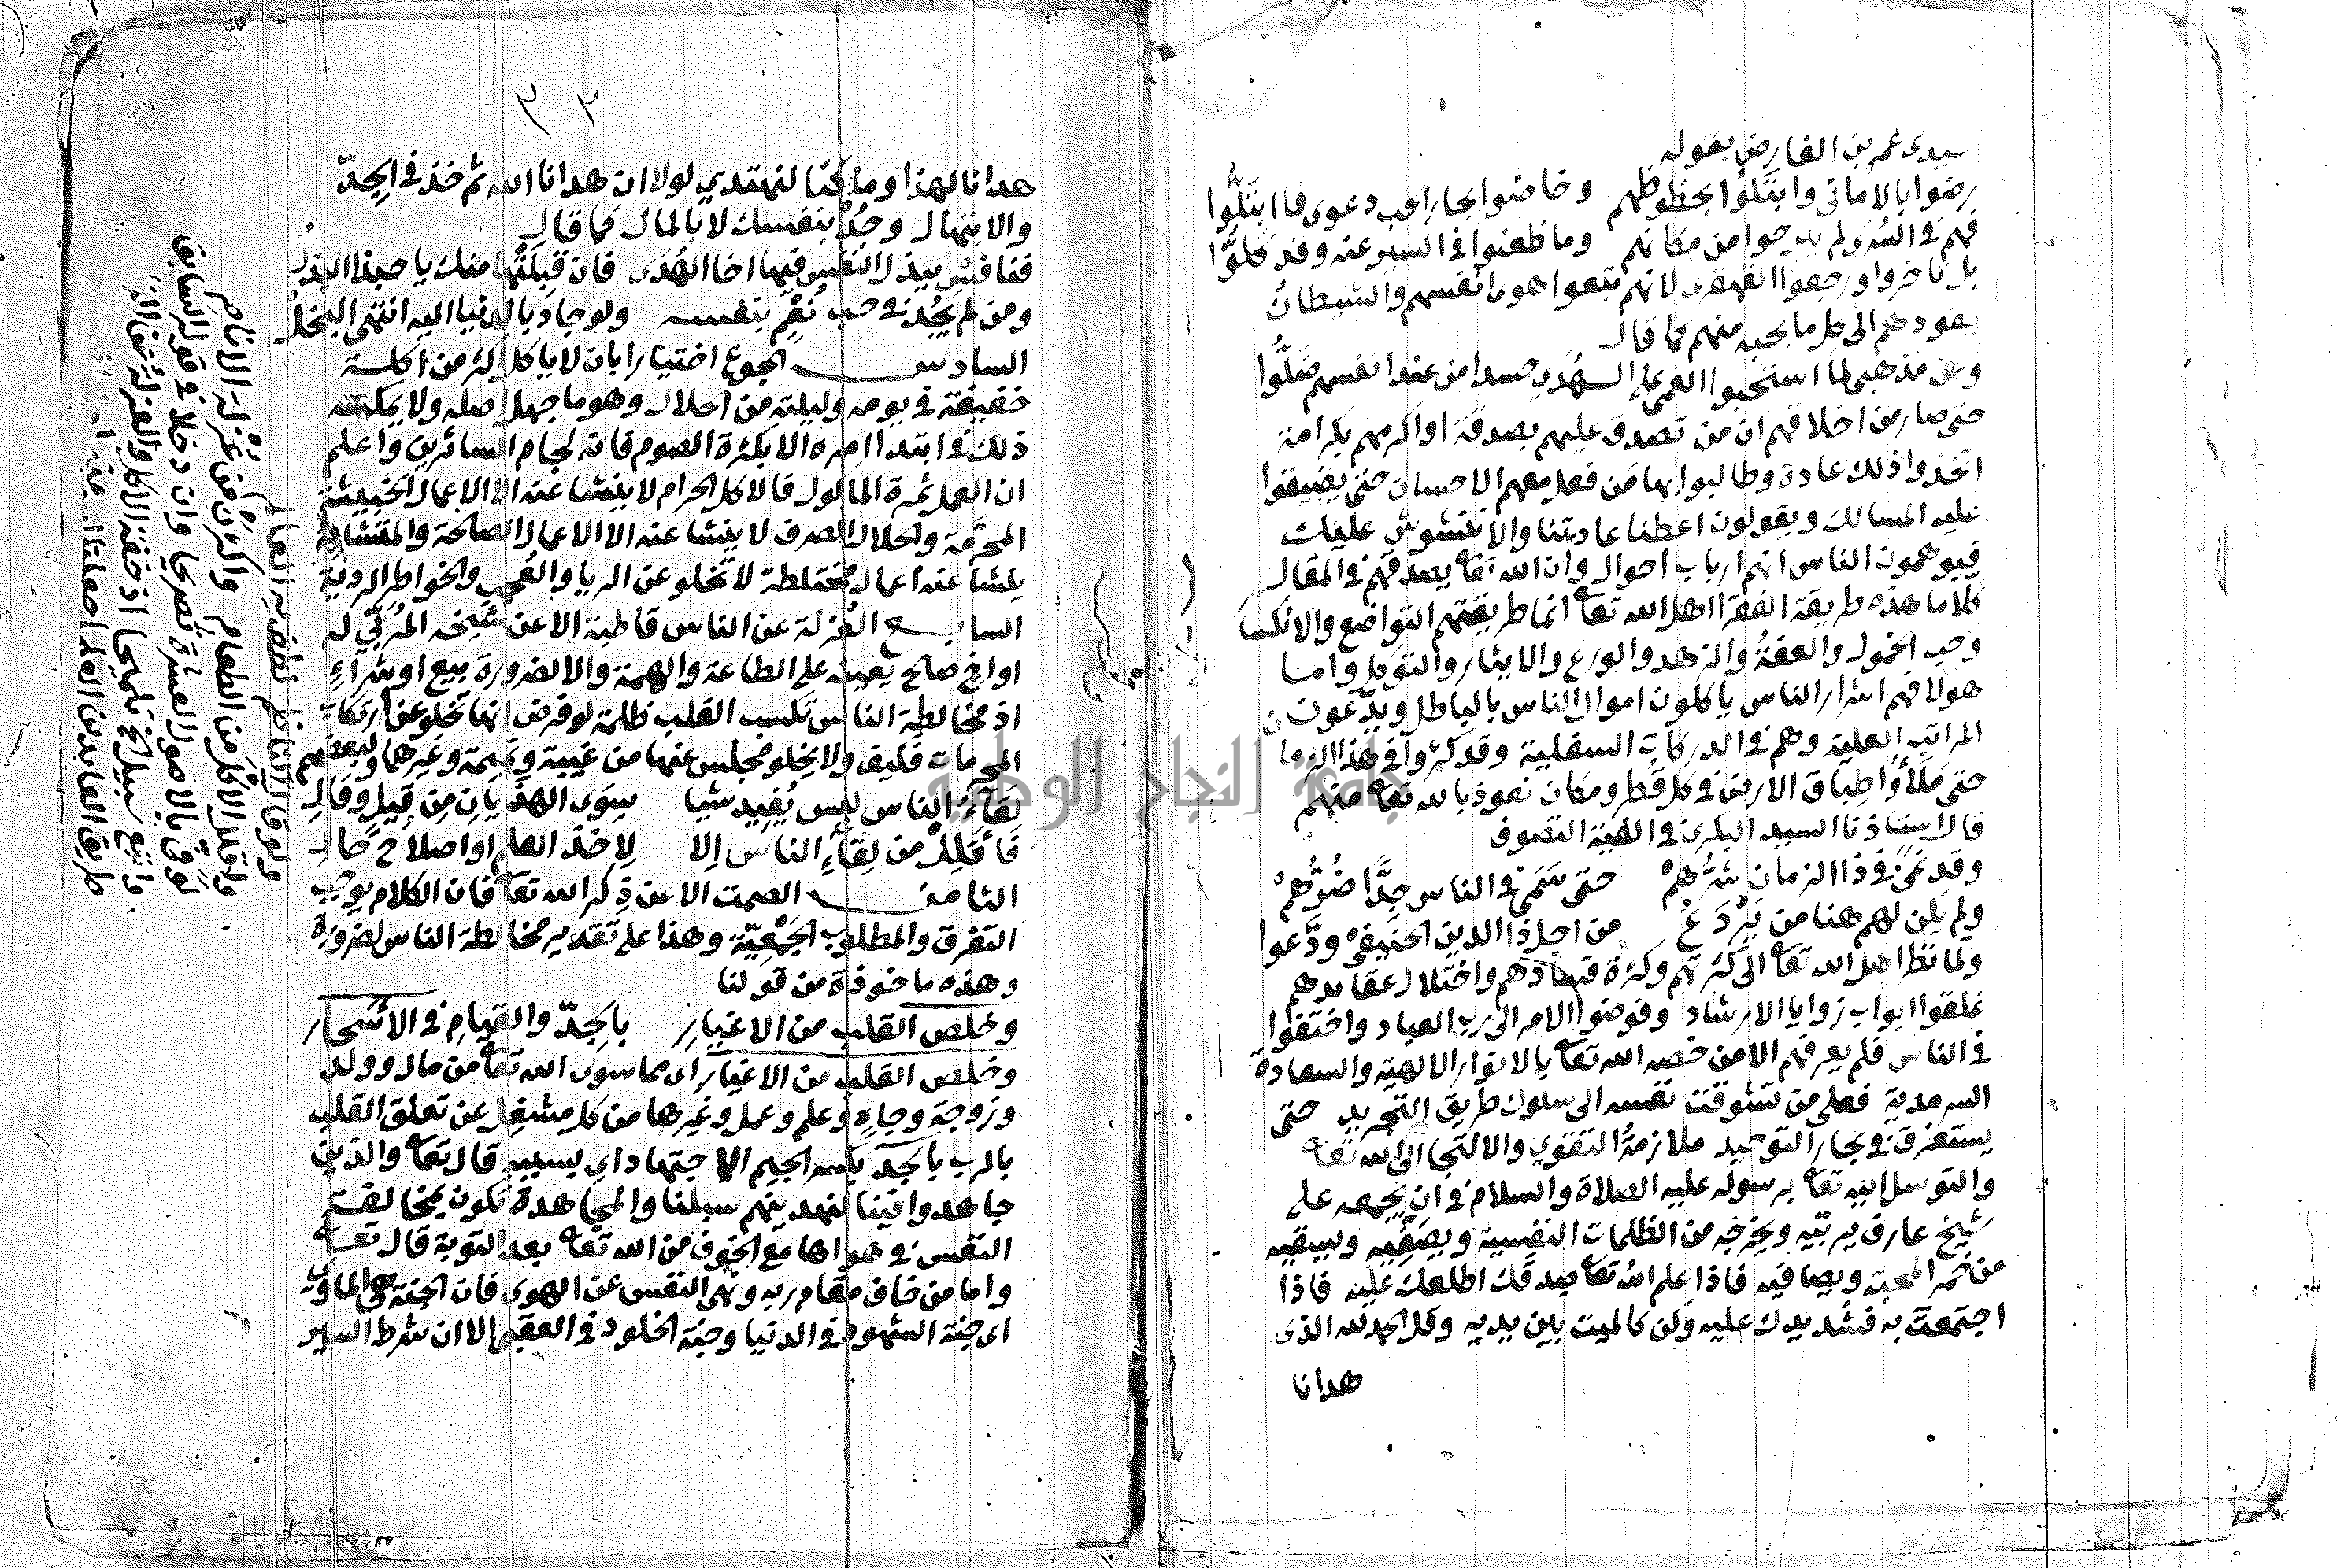 سيدى عمر بن الفارض بقوله
رضوا بالامانى وابتلوا بحظوظهم وخاضوا بحار الحب دعوى فما ابتلوا
فهم فى السرى لم يبرحوا من مكانهم وما ظعنوا فى السير عنه وقد كلوا
بل تاخروا ورجعوا القهقرى لانهم تبعوا هوى انفسهم والشيطان
يعودهم الى كل ما يحبه منهم كما قال
وعن مذهبى لما استحبوا العمى على الهدى حسدا من عند انفسهم ضلوا
حتى صار من اخلاقهم ان من تصدق عليهم بصدقة او اكرمهم بكرامة
اتخذوا ذلك عادة وطالبوا بها من فعل معهم الاحسان حتى يضيقوا
عليه المسالك ويقولون اعطنا عادتنا والا نتشوش عليك
فيوهمون الناس انهم ارباب احوال وان الله تعا يصدقهم فى المقال
كلا ما هذه طريقة الفقرا اهل الله تعا انما طريقتهم التواضع والانكسا
وحب الخمول والعفة والزهد والورع والايثار والتوكل واما
هولا فهم اشرار الناس ياكلون اموال الناس بالباطل ويدعون
المراتب العلية وهم فى الدركات السفلية وقد كثروا فى هذا الزما
حتى ملأوا طباق الارض فى كل قطر ومكان نعوذ بالله تعا منهم
قال استاذنا السيد البكرى فى الفية التصوف
وقد نمى فى ذا الزمان شرهم حتى سَمَى فى الناس جدا ضرهم
ولم يكن لهم هنا من يردع من اجل ذا الدين الحنيفى ودعوا
ولما نظر اهل الله تعا الى كثرتهم وكثرة فسادهم واختلال عقايدهم
غلقوا ابواب زوايا الارشاد وفوضوا الامر الى رب العباد واختفوا
فى الناس فلم يعرفهم الا من خصه الله تعا بالانوار الالهية والسعادة
السرمدية فعلى من تشوقت نفسه الى سلوك طريق التجريد حتى
يستغرق فى بحار التوحيد ملازمة التقوى والالتجا الى الله تعا
والتوسل اليه تعا برسوله عليه الصلاة والسلام فى ان يجمعه على
شيخ عارف يربيه ويخرجه من الظلمات النفسية ويصفيه ويسقيه
من خمر المحبة ويصافيه فاذا علم الله تعا صدقك اطلعك عليه فاذا
اجتمعت به فشد يدك عليه وكن كالميت بين يديه وقل الحمد لله الذى
هدانا
٣٣
هدانا لهذا وما كنا لنهتدى لولا ان هدانا الله ثم خذ فى الجد
والابتهال وجد بنفسك لا بالمال كما قال
فنافس ببذل النفس فيها اخا الهدى فان قبلتها منك يا حبذا البذل
ومن لم يجد فى حب نعم بنفسه ولو جاد بالدنيا اليه انتهى البخل
السادس الجوع اختيارا بان لا ياكل اكثر من اكلة
خفيفة فى يومه وليلته من الحلال وهو ما جهل اصله ولا يمكنه
ذلك فى ابتدا امره الا بكثرة الصوم فانه لجام السائرين واعلم
ان العمل ثمرة الماكول فالاكل الحرام لا ينشا عنه الا الاعمال الخبيثة
المحرمة والحلال الصرف لا ينشا عنه الا الاعمال الصالحة والمتشابه
ينشا عنه اعمال مختلطة لا تخلو عن الريا والعجب والخواطر الردية
السابع العزلة عن الناس قاطبة الا عن شيخه المربى له
او اخ صالح يعينه على الطاعة والهمة والا لضرورة بيع او شراء
اذ مخالطة الناس تكسب القلب ظلمة لو فرض انها تخلو عن ارتكاب
المحرمات فكيف ولا يخلو مجلس عنها من غيبة ونميمة وغيرهما ولبعضهم
لقاء الناس ليس يفيد شيا سوى الهذيان من قيل وقال
فاقلل من لقاء الناس الا لاخذ العلم او اصلاح حال
الثامن الصمت الا عن ذكر الله تعا فان الكلام يوجب
التفرق والمطلوب الجمعية وهذا على تقدير مخالطة الناس لضرورة
وهذه ماخوذة من قولنا
وخلص القلب من الاغيار بالجد والقيام فى الاسحار
وخلص القلب من الاغيار اى مما سوى الله تعا من مال وولد
وزوجة وجاه وعلم وعمل وغيرها من كل مشغل عن تعلق القلب
بالرب بالجد بكسر الجيم الاجتهاد اى بسببه قال تعا والذين
جاهدوا فينا لنهدينهم سبلنا والمجاهدة تكون بمخالفة
النفس فى هواها مع الخوف من الله تعا بعد التوبة قال تعا
واما من خاف مقام ربه ونهى النفس عن الهوى فان الجنة هى الماوى
اى جنة الشهود فى الدنيا وجنة الخلود فى العقبى الا ان شرط السير
ولوقال الناظم لطف به العالم
واقلل الاكل من الطعام واكثرن من عزلة الانام
لوفى بالاصول العشرة تصريحا وان دخلا فى قوله السابق
واتبع سبيل الخ تلميحا اذ خفة الاكل والعزلة
طريق العابدين
جامعة النجاح الوطنية